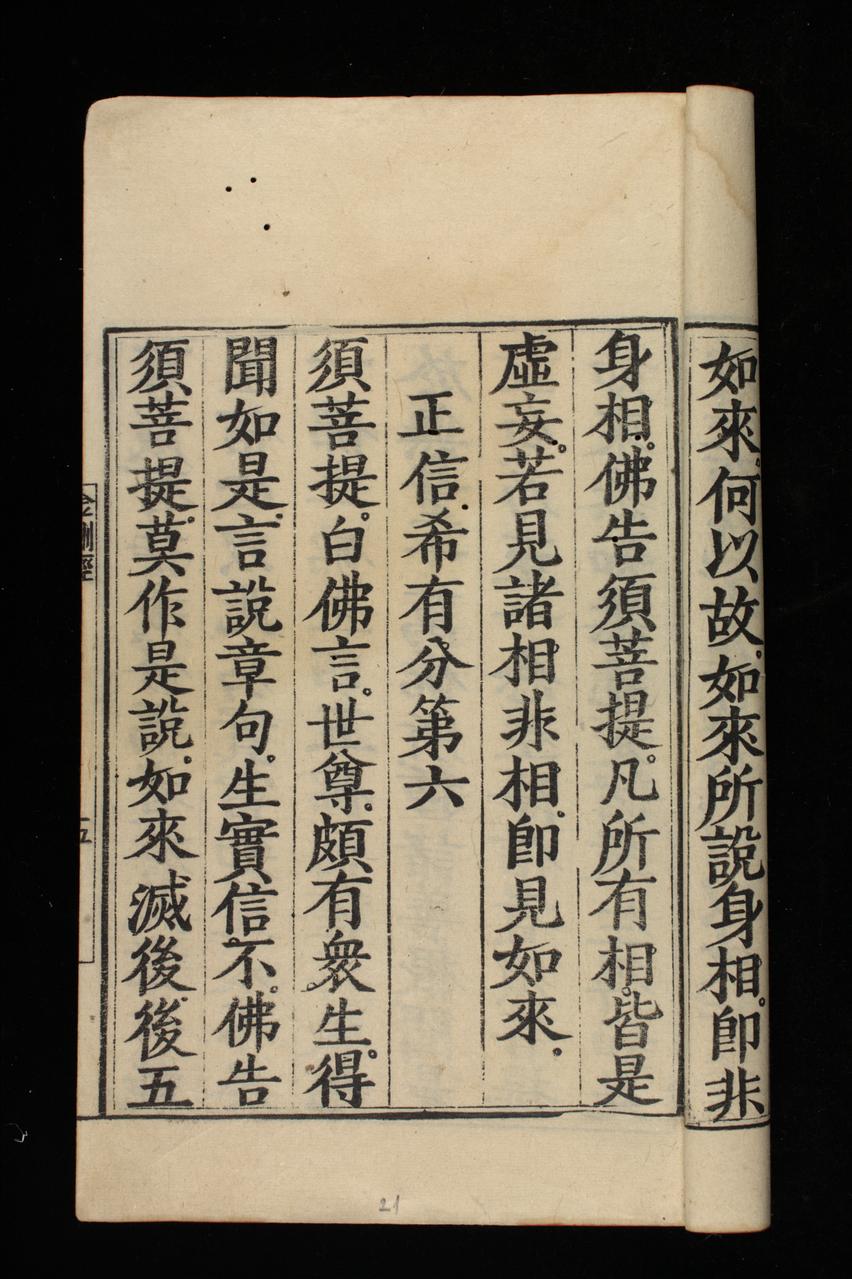 如來。何以故。如來所說身相。卽非
身相。佛告須菩提。凡所有相。皆是
虛妄。若見諸相非相。卽見如來。
正信希有分第六
須菩提。白佛言。世尊。頗有衆生。得
聞如是。言說章句。生實信不。佛告
須菩提。莫作是說。如來滅後。後五
金剛經
五
21